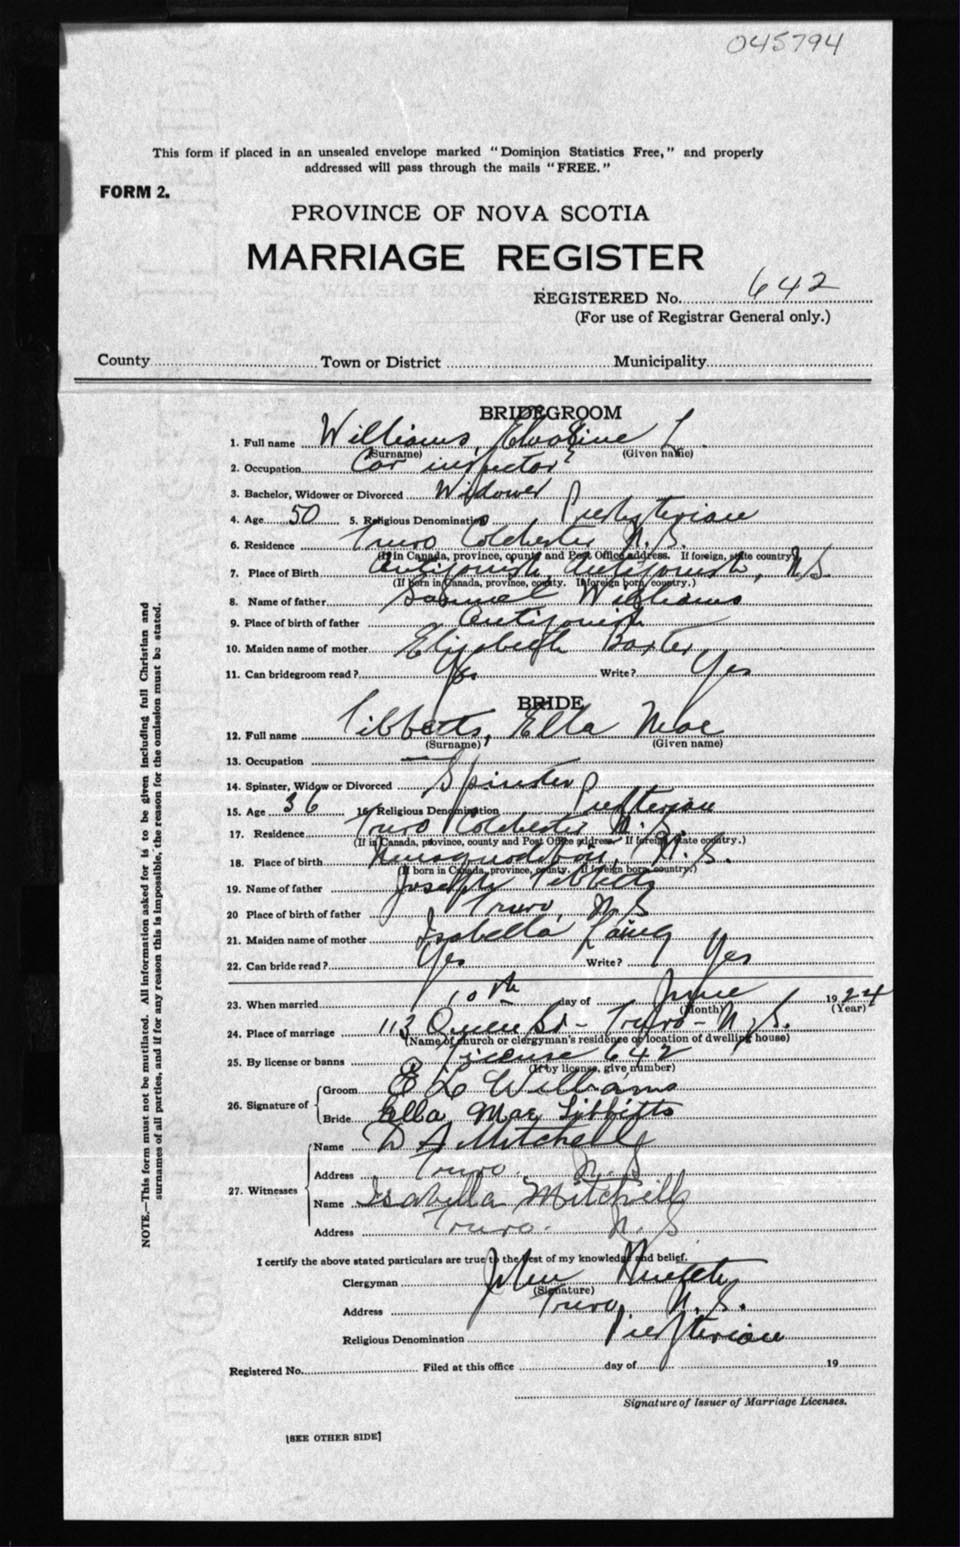 045794
This form if placed in an unsealed envelope marked "Dominion Statistics Free," and properly
addressed will pass through the mails "FREE."
FORM 2.
PROVINCE OF NOVA SCOTIA
MARRIAGE REGISTER
REGISTERED No. 642
(For use of Registrar General only.)
County Town or District Municipality
BRIDEGROOM
1. Full name Williams, L.
(Surname) (Given name)
2. Occupation Car inspector
3. Bachelor, Widower or Divorced Widower
4. Age 50 5. Religious Denomination Presbyterian
6. Residence Truro Colchester N. S.
(If in Canada, province, county and Post Office address. If foreign, state country)
7. Place of Birth Antigonish, Antigonish, N.S.
(If born in Canada, province, county. If foreign born, country.)
8. Name of father Samuel Williams
9. Place of birth of father Antigonish
10. Maiden name of mother Elizabeth Baxter
11. Can bridegroom read? Yes Write? Yes
BRIDE
12. Full name Tibbetts, Ella Mae
(Surname) (Given name)
13. Occupation —
14. Spinster, Widow or Divorced Spinster
15. Age 36 16. Religious Denomination Presterian
17. Residence Truro Colchester N. S.
(If in Canada, province, county and Post Office address. If foreign, state country.)
18. Place of birth N. S.
(If born in Canada, province, county. If foreign born, country.)
19. Name of father Joseph Tibbetts
20 Place of birth of father Truro, N. S
21. Maiden name of mother Isabella Laing
22. Can bride read? Yes Write? Yes
23. When married 10th day of June 1924
(Month) (Year)
24. Place of marriage 113 Queen St - Truro - N. S.
(Name of church or clergyman's residence or location of dwelling house)
25. By license or banns License 642
(If by license, give number)
26. Signature of Groom E L Williams
Bride Ella Mae Tibbitts
27. Witnesses Name D A Mitchell
Address Truro. N. S
Name Isabella Mitchell
Address Truro. N. S
I certify the above stated particulars are true to the best of my knowledge and belief.
Clergyman John
(Signature)
Address Truro, N. S.
Religious Denomination Presterian
Registered No. Filed at this office day of 19
Signature of Issuer of Marriage Licenses.
[SEE OTHER SIDE]
NOTE.—This form must not be mutilated. All information asked for is to be given including full Christian and
surnames of all parties, and if for any reason this is impossible, the reason for the omission must be stated.